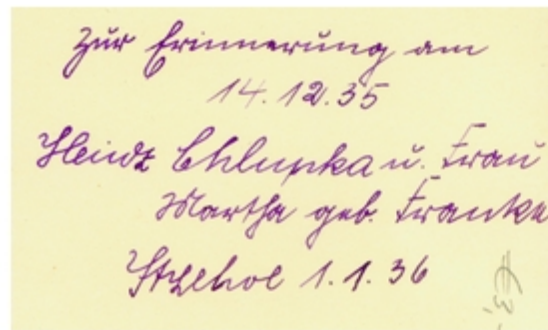 Zur Erinnerung am
14.12.35
Heinz Chlupka u. Frau
Martha geb. Franke
Itzehoe 1.1.36